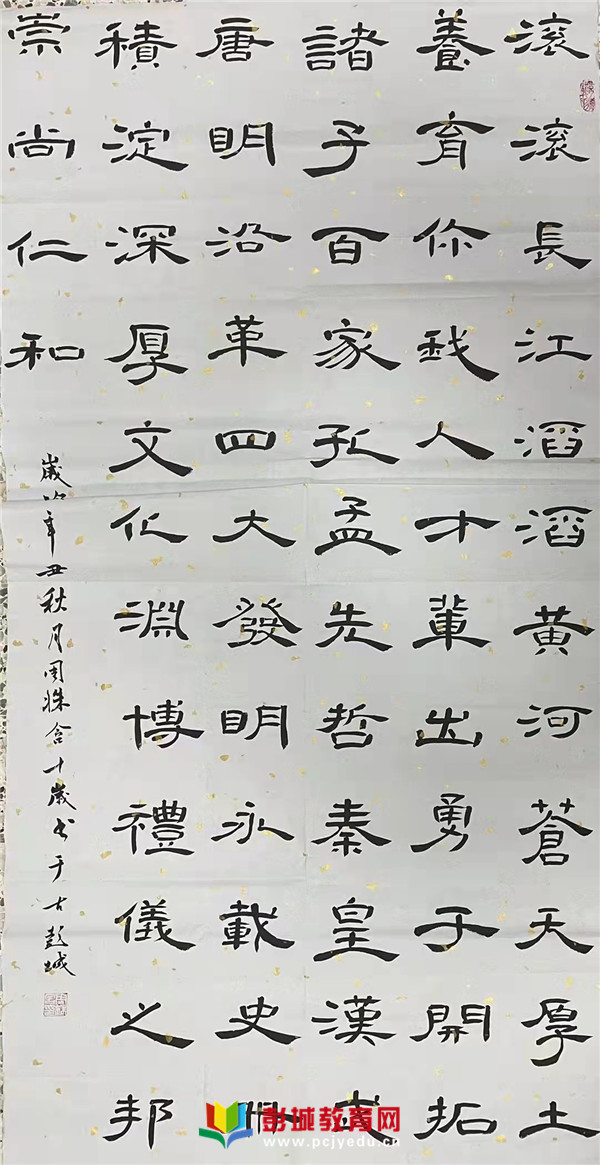 滚滚長江滔滔黄河蒼天厚土
養育你我人才輩出勇于開拓
諸子百家孔孟先哲秦皇漢武
唐明沿革四大發明永載史册
積淀深厚文化淵博禮儀之邦
崇尚仁和
歲次辛丑秋月周姝含十歲书于古彭城
彭城教育网
www.pcjyedu.cn